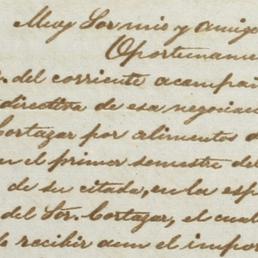 Muy Sor mio y amigo
Oportuname
del corriente acompañ
directora de esa negociac
Cortazar por alimentos d
n el primer semestre del
de su citada, en la esp
del Sor. Cortazar, el cual
recibir aun el impor